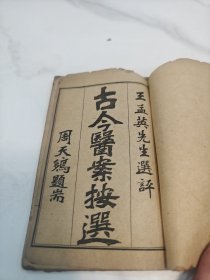 王孟英先生選評
古今醫案按選
周天鵷題耑